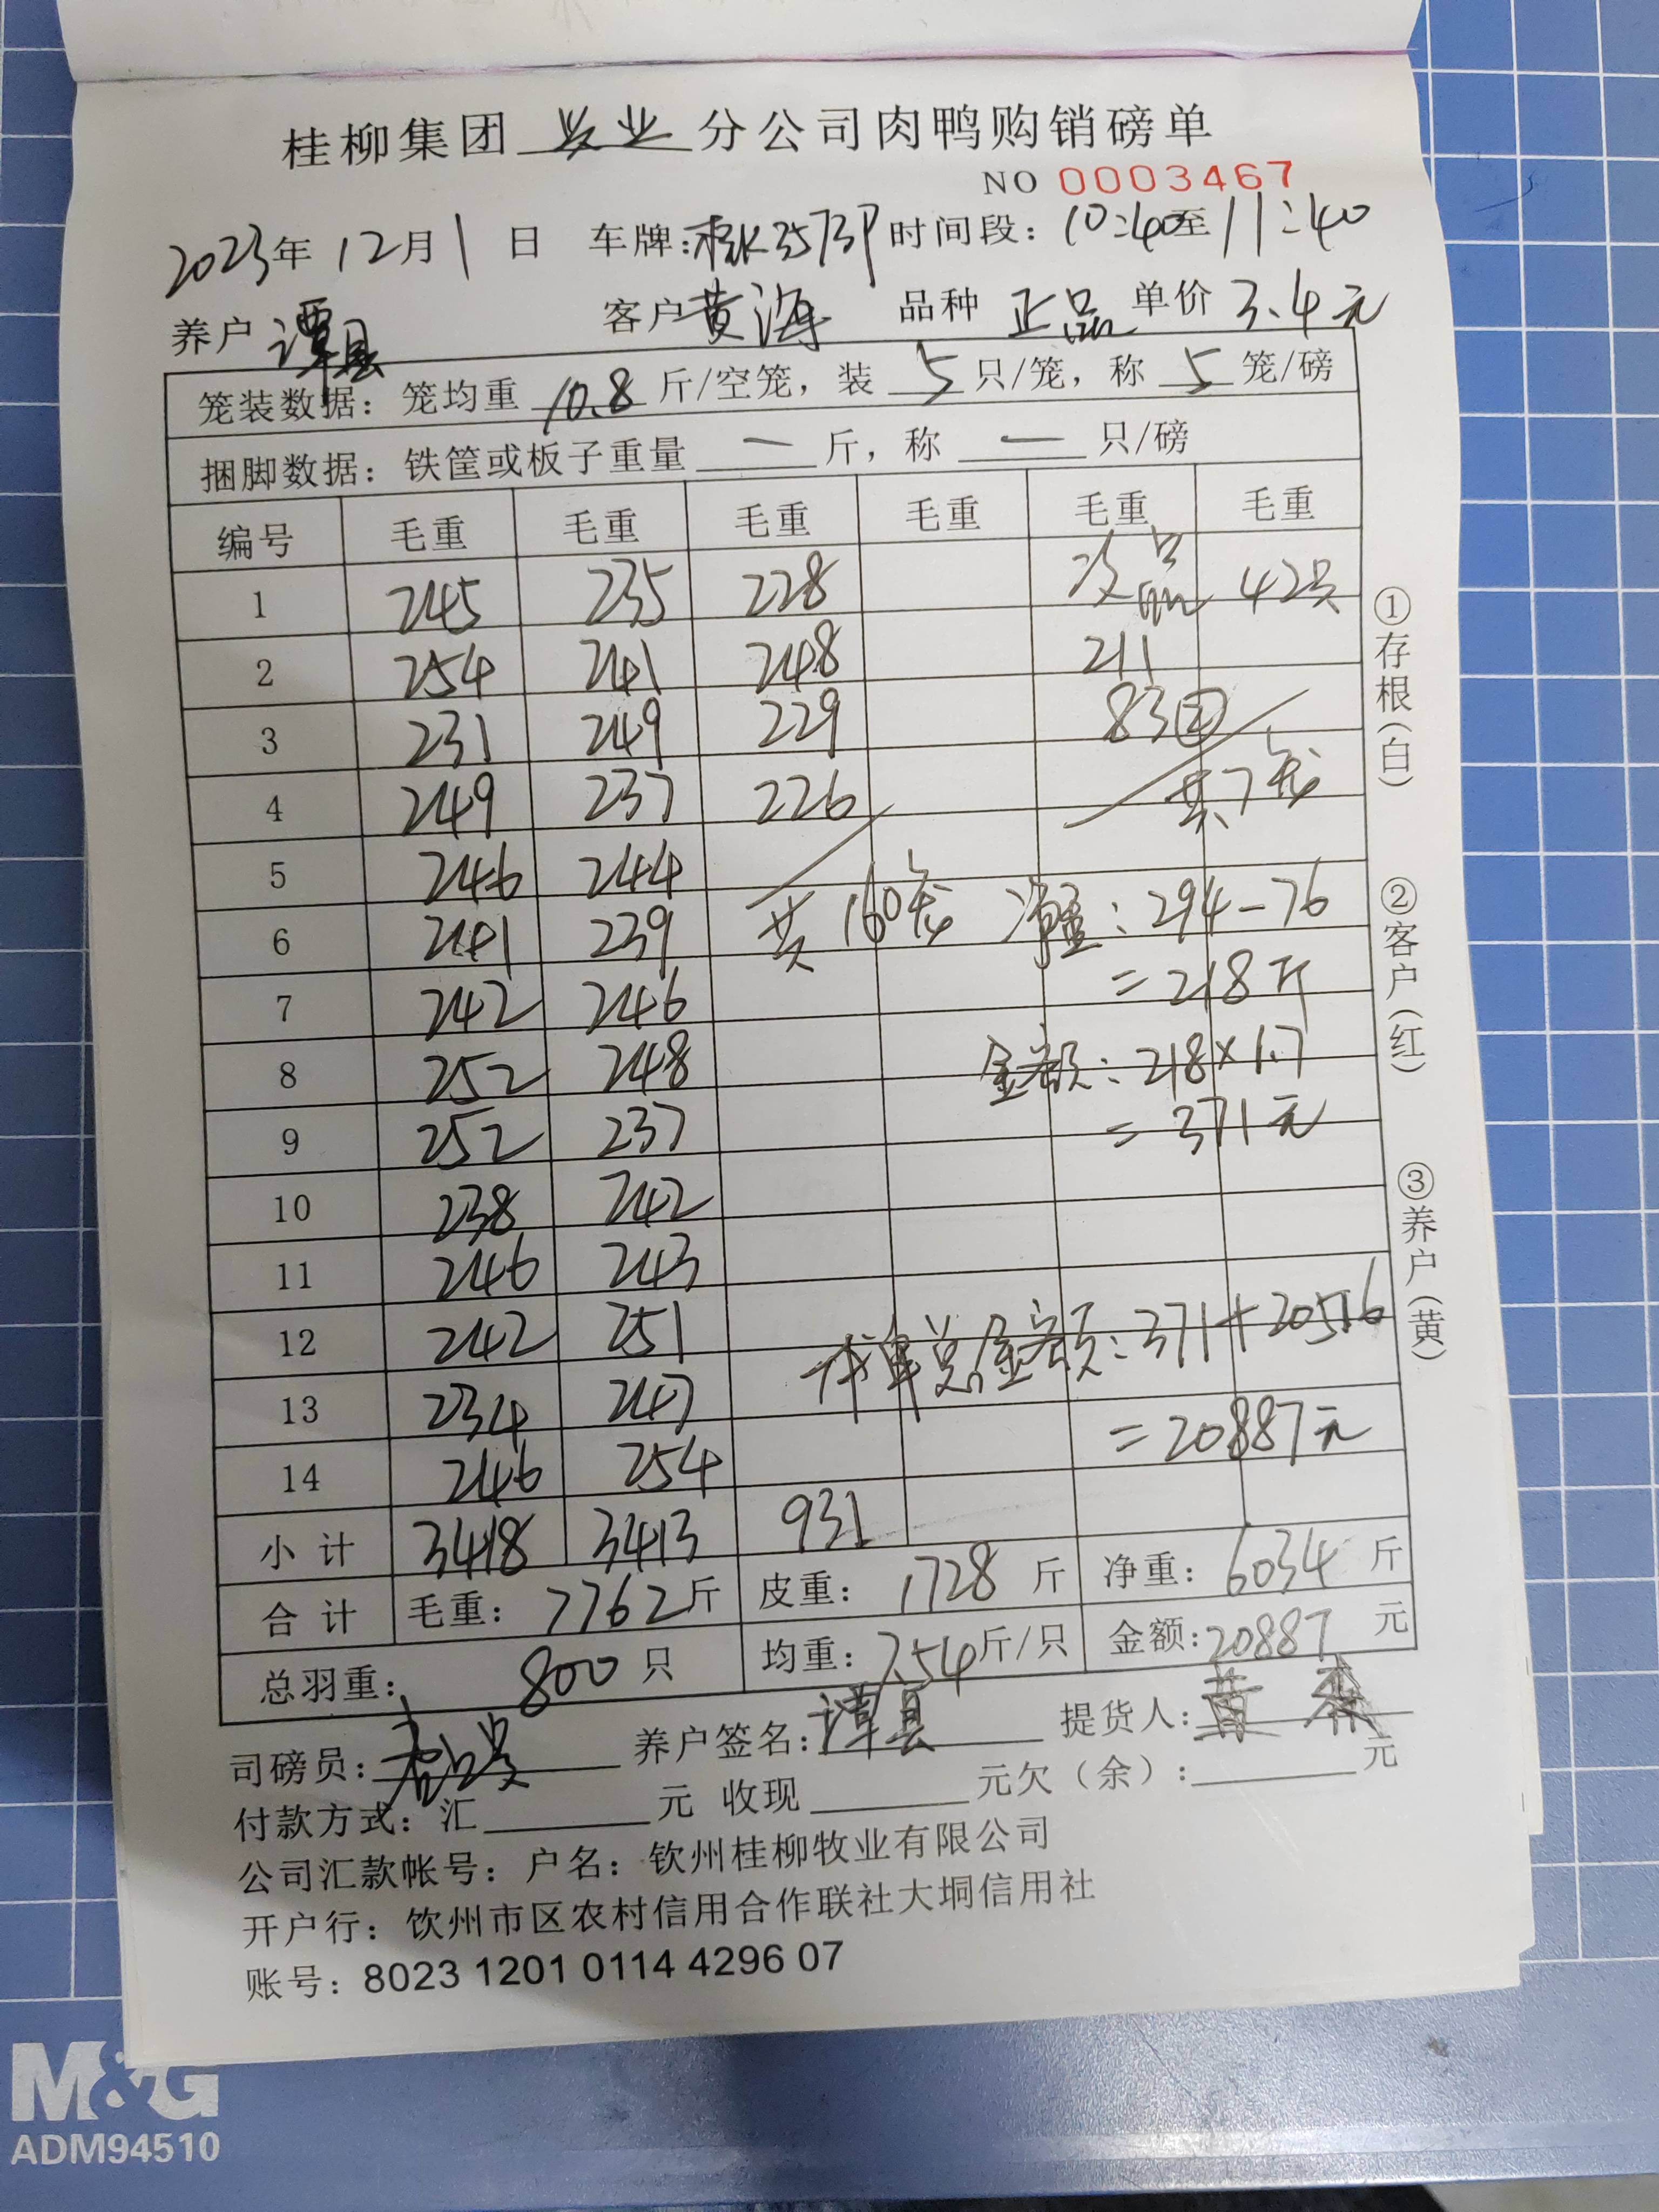 桂柳集团 兴业 分公司肉鸭购销磅单
NO 0003467
2023年 12月 1 日 车牌: 桂K3573P 时间段: 10:40至11:40
养户 谭县 客户 黄海 品种 正品 单价 3.4元
笼装数据: 笼均重 10.8 斤/空笼, 装 5 只/笼, 称 5 笼/磅
捆脚数据: 铁筐或板子重量 — 斤, 称 — 只/磅
编号 毛重 毛重 毛重 毛重 毛重 毛重
1 245 235 228 次品 42只
2 254 241 248 211
3 231 249 229 83②
4 249 237 226 共7笼
5 246 244
6 241 239 共160笼 净重: 294-76
7 242 246 =218斤
8 252 248 金额: 218×1.7
9 252 237 =371元
10 238 242
11 246 243
12 242 251 本单总金额: 371+20516
13 234 247 =20887元
14 246 254
小计 3418 3413 931
合计 毛重: 7762斤 皮重: 1728 斤 净重: 6034 斤
总羽重: 800只 均重: 7.54斤/只 金额: 20887 元
司磅员: 养户签名: 谭县 提货人: 黄
付款方式: 汇 元 收现 元欠(余): 元
公司汇款帐号: 户名: 钦州桂柳牧业有限公司
开户行: 钦州市区农村信用合作联社大垌信用社
账号: 8023 1201 0114 4296 07
①存根(白)
②客户(红)
③养户(黄)
M&G
ADM94510